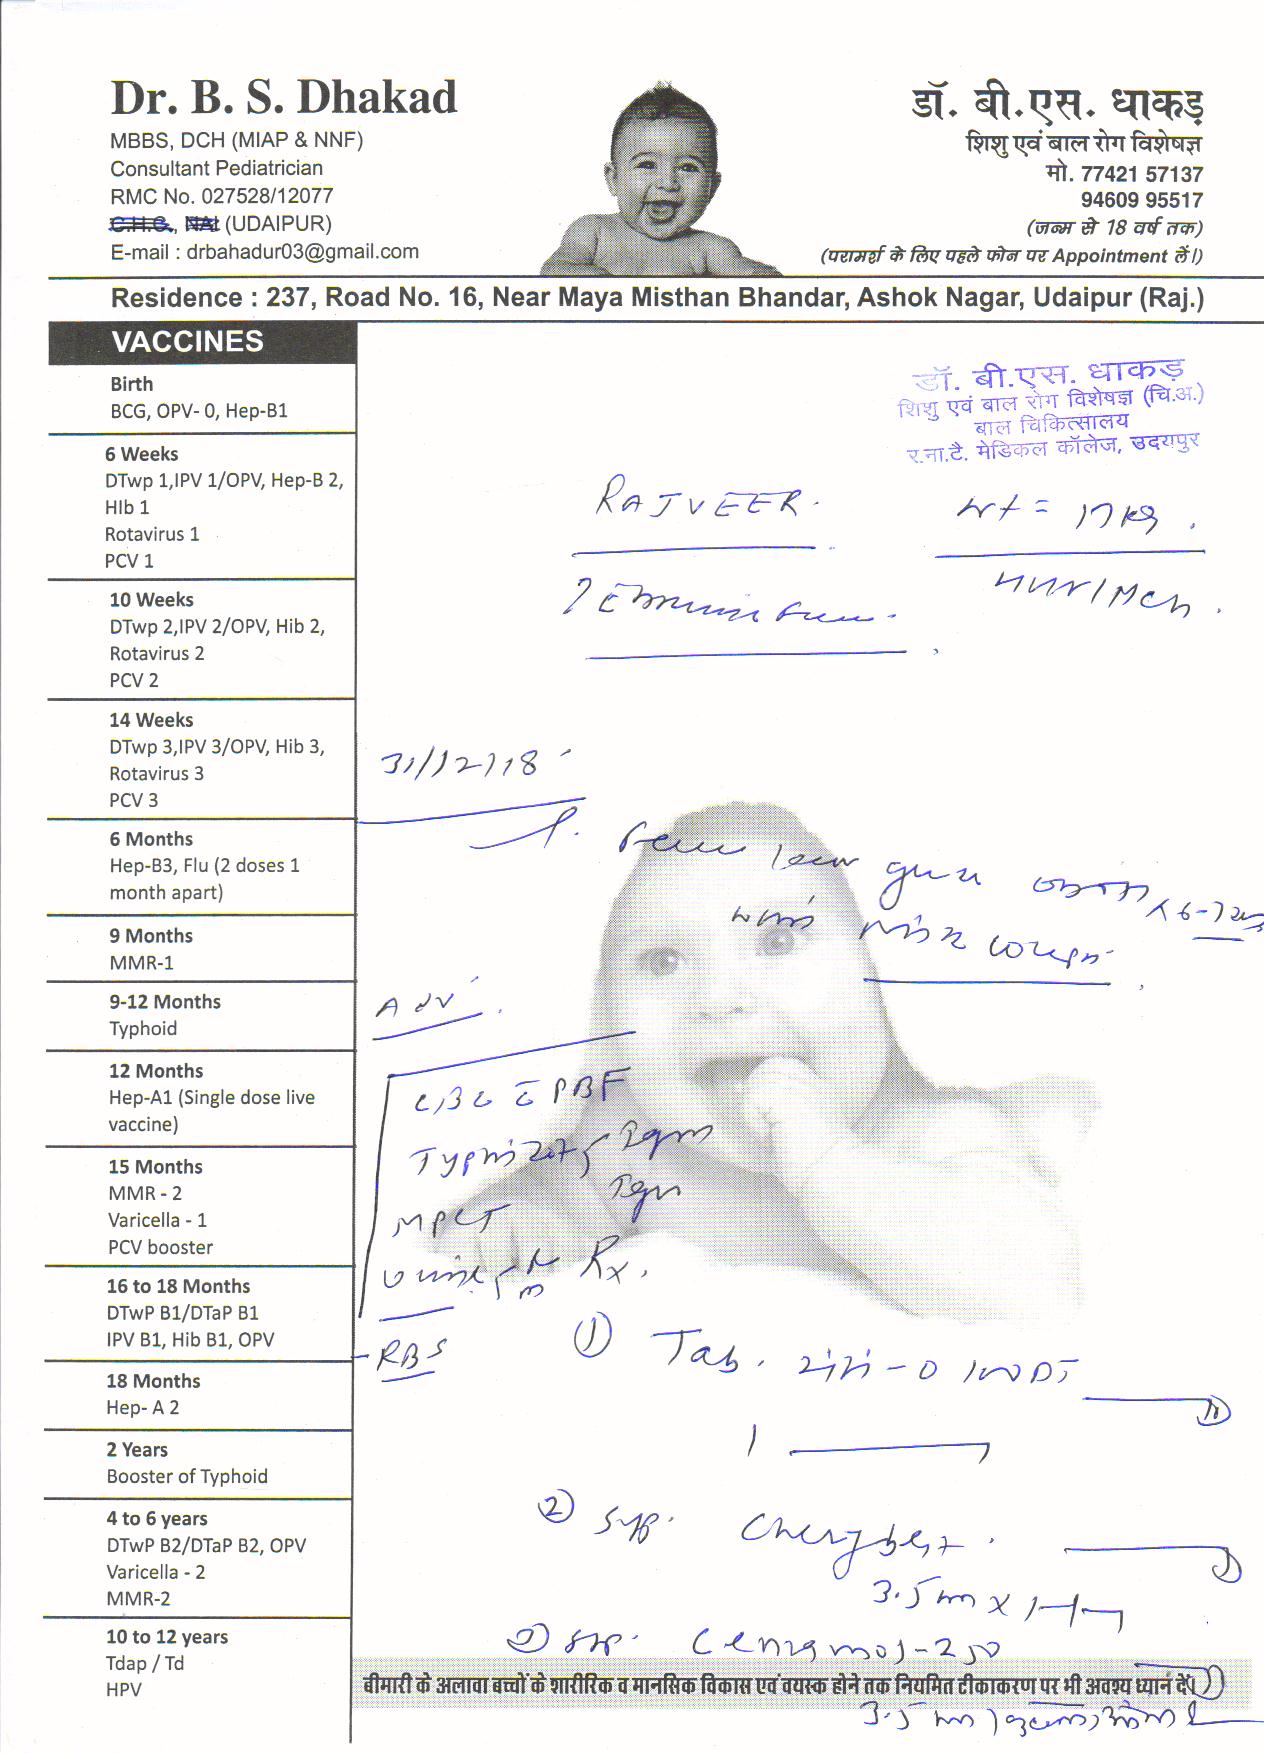 Dr. B. S. Dhakad
MBBS, DCH (MIAP & NNF)
Consultant Pediatrician
RMC No. 027528/12077
C.H.C., NAI (UDAIPUR)
E-mail : drbahadur03@gmail.com
डॉ. बी.एस. धाकड़
शिशु एवं बाल रोग विशेषज्ञ
मो. 77421 57137
94609 95517
(जन्म से 18 वर्ष तक)
(परामर्श के लिए पहले फोन पर Appointment लें।)
Residence : 237, Road No. 16, Near Maya Misthan Bhandar, Ashok Nagar, Udaipur (Raj.)
VACCINES
Birth
BCG, OPV- 0, Hep-B1
6 Weeks
DTwp 1,IPV 1/OPV, Hep-B 2,
HIb 1
Rotavirus 1
PCV 1
10 Weeks
DTwp 2,IPV 2/OPV, Hib 2,
Rotavirus 2
PCV 2
14 Weeks
DTwp 3,IPV 3/OPV, Hib 3,
Rotavirus 3
PCV 3
6 Months
Hep-B3, Flu (2 doses 1
month apart)
9 Months
MMR-1
9-12 Months
Typhoid
12 Months
Hep-A1 (Single dose live
vaccine)
15 Months
MMR - 2
Varicella - 1
PCV booster
16 to 18 Months
DTwP B1/DTaP B1
IPV B1, Hib B1, OPV
18 Months
Hep- A 2
2 Years
Booster of Typhoid
4 to 6 years
DTwP B2/DTaP B2, OPV
Varicella - 2
MMR-2
10 to 12 years
Tdap / Td
HPV
डॉ. बी.एस. धाकड़
शिशु एवं बाल रोग विशेषज्ञ (चि.अ.)
बाल चिकित्सालय
र.ना.टै. मेडिकल कॉलेज, उदयपुर
RAJVEER. wt = 17 kg.
31/12/18
Adv.
CBC c̄ PBF
Typhidot IgM
IgG
MPCT
Urine R
M
RBS
Rx.
① Tab. 100 DT
1
② Syp.
3.5 ml x
Syp. - 250
3.5 ml
बीमारी के अलावा बच्चों के शारीरिक व मानसिक विकास एवं वयस्क होने तक नियमित टीकाकरण पर भी अवश्य ध्यान देंवें